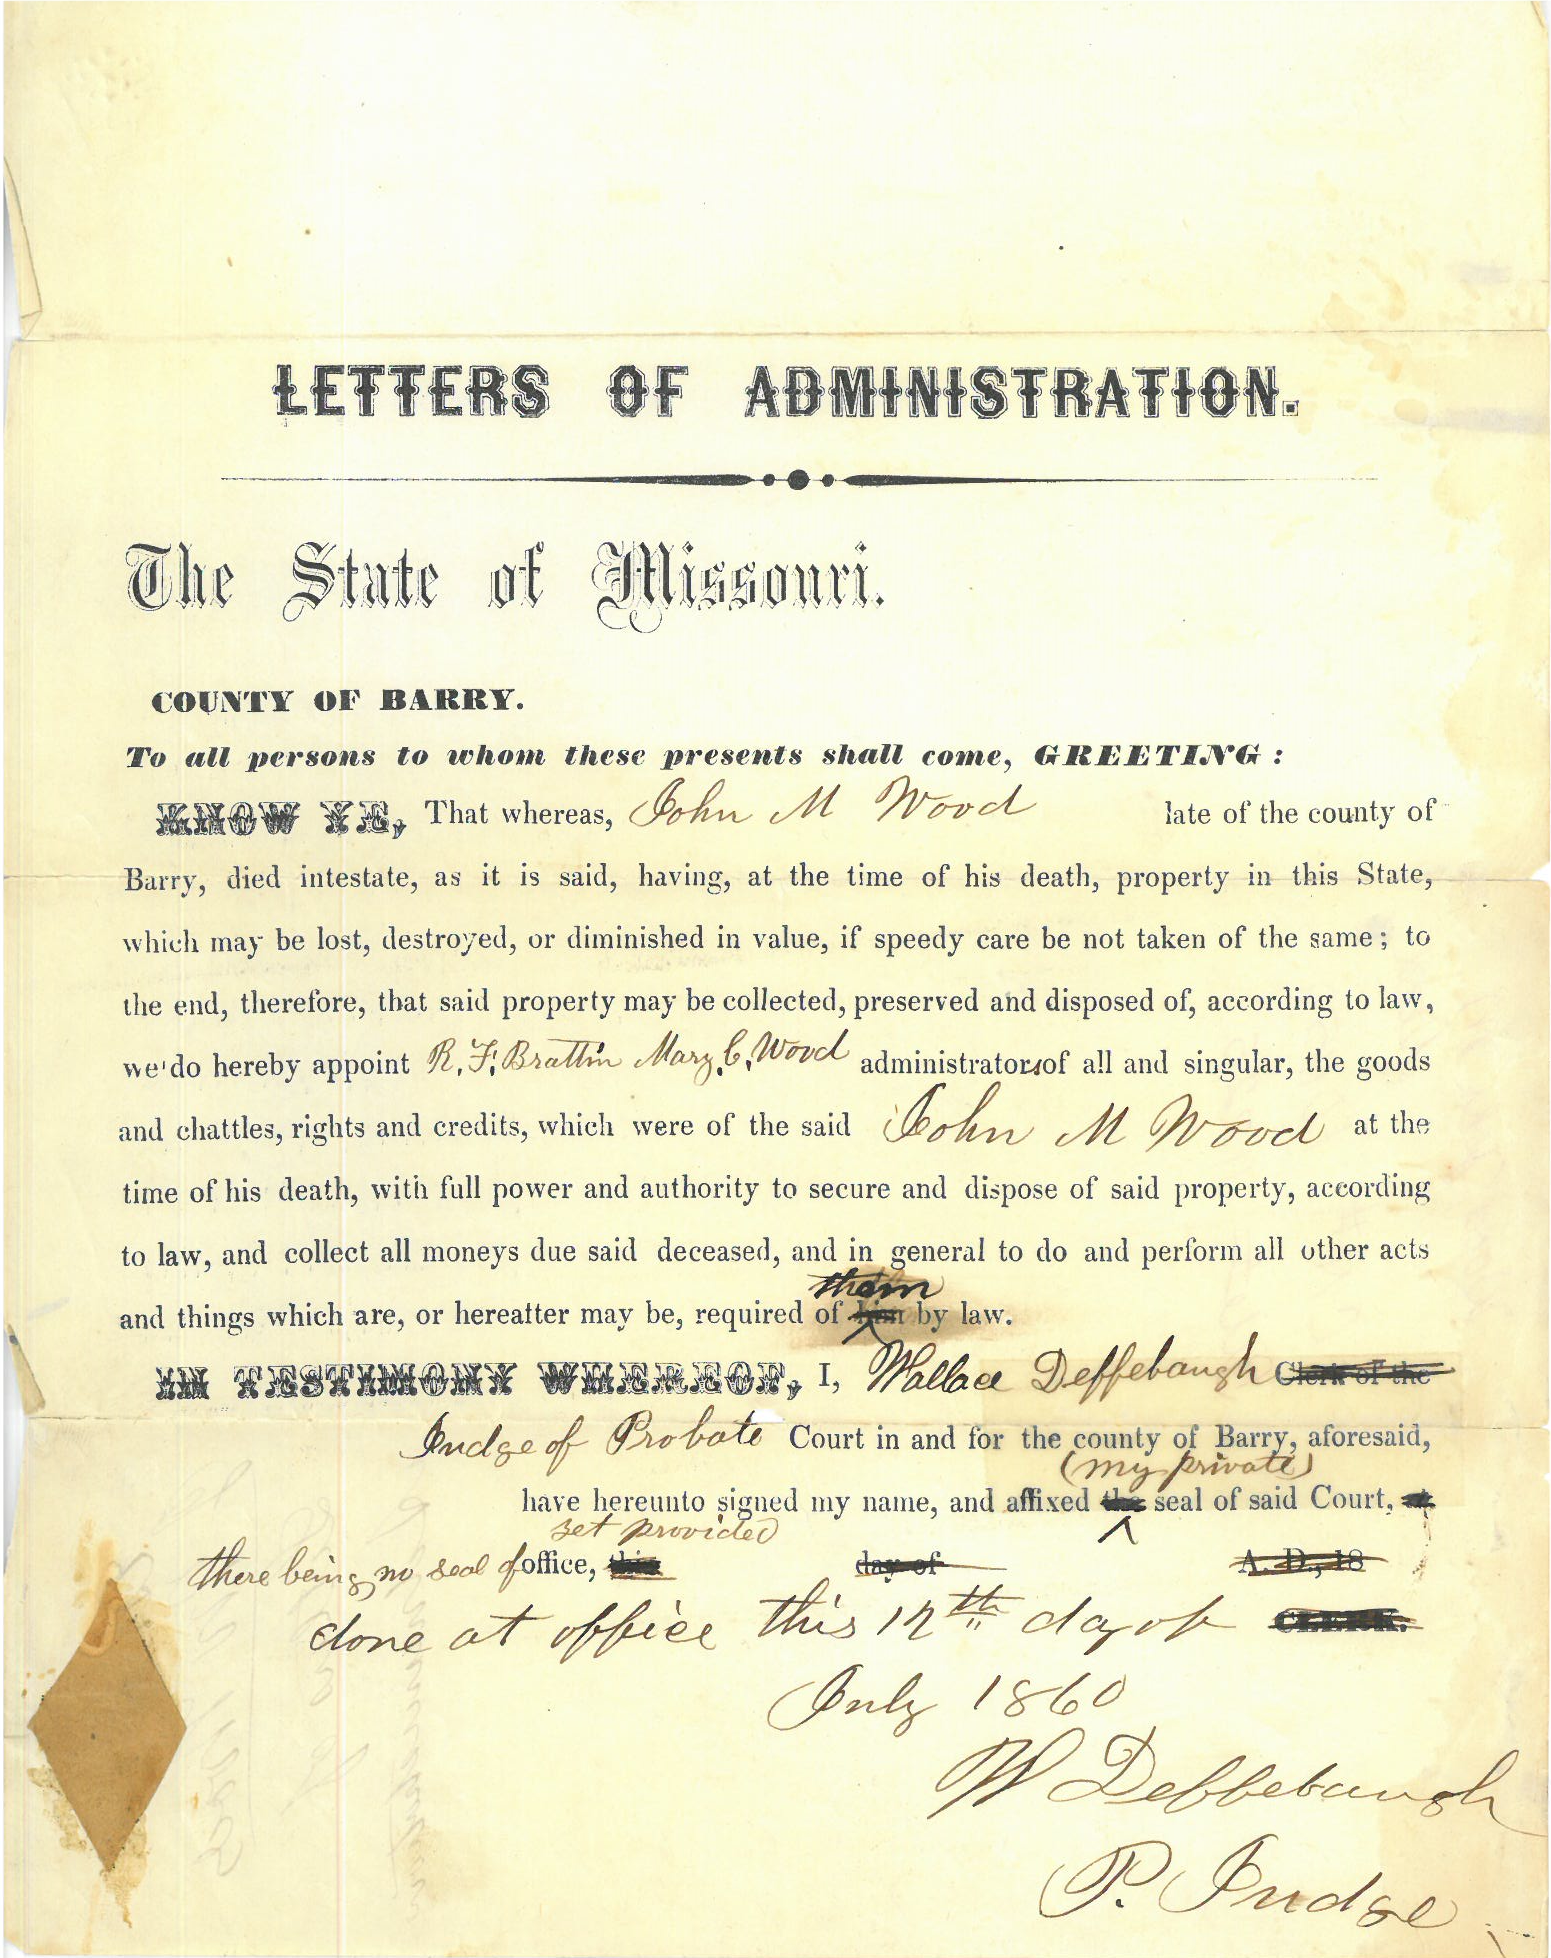 LETTERS OF ADMINISTRATION.
The State of Missouri.
COUNTY OF BARRY.
To all persons to whom these presents shall come, GREETING:
KNOW YE, That whereas, John M Wood late of the county of
Barry, died intestate, as it is said, having, at the time of his death, property in this State,
which may be lost, destroyed, or diminished in value, if speedy care be not taken of the same; to
the end, therefore, that said property may be collected, preserved and disposed of, according to law,
we do hereby appoint R. F. Brattin Mary C. Wood administrators of all and singular, the goods
and chattles, rights and credits, which were of the said John M Wood at the
time of his death, with full power and authority to secure and dispose of said property, according
to law, and collect all moneys due said deceased, and in general to do and perform all other acts
them
and things which are, or hereafter may be, required of him by law.
IN TESTIMONY WHEREOF, I, Wallace Deffebaugh Clerk of the
Judge of Probate Court in and for the county of Barry, aforesaid,
(my private)
have hereunto signed my name, and affixed the seal of said Court, at
yet provided
there being no seal of office, this day of A. D., 18
done at office this 12th day of CLERK.
July 1860
W Deffebaugh
P. Judge